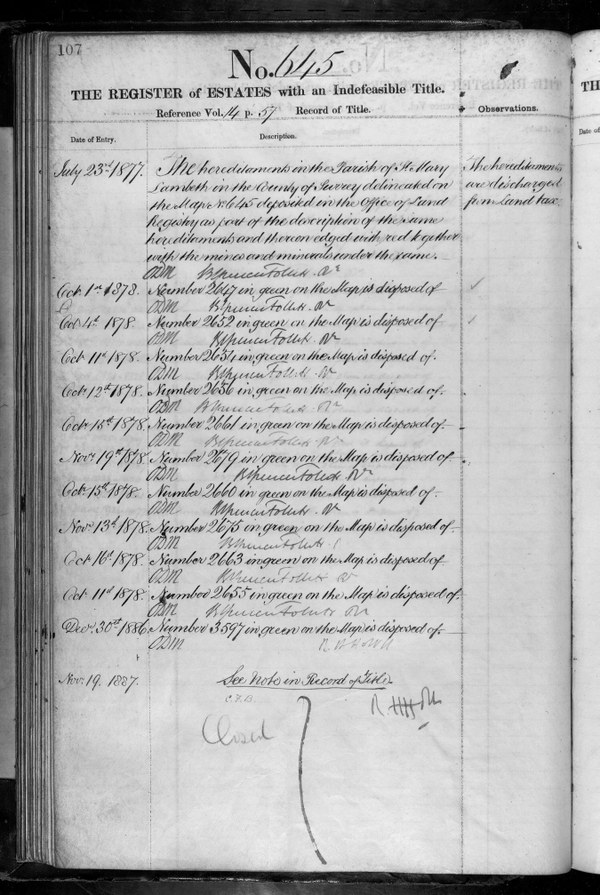 107
No. 645
THE REGISTER of ESTATES with an Indefeasible Title.
Reference Vol. 14 p. 57 Record of Title.
Observations.
Date of Entry.
Description.
July 23rd 1877. The hereditaments in the Parish of St Mary
Lambeth in the County of Surrey delineated on
the Map No 645 deposited in the Office of Land
Registry as part of the description of the same
hereditaments and thereon edged with red together
with the mines and minerals under the same.
The hereditaments
are discharged
from Land tax.
ODM BSpencerFollett Rr
Oct 1st 1878. Number 2647 in green on the Map is disposed of
ODM BSpencerFollett Rr
Oct 4th 1878 Number 2652 in green on the Map is disposed of
ODM BSpencerFollett Rr
Oct 11th 1878. Number 2654 in green on the Map is disposed of.
ODM BSpencerFollett Rr
Oct 12th 1878. Number 2656 in green on the Map is disposed of
ODM BSpencerFollett Rr
Oct 15th 1878. Number 2661 in green on the Map is disposed of
ODM BSpencerFollett Rr
Nov. 19th 1878. Number 2679 in green on the Map is disposed of
ODM BSpencerFollett Rr
Oct 15th 1878. Number 2660 in green on the Map is disposed of
ODM BSpencerFollett Rr
Nov. 13th 1878. Number 2675 in green on the Map is disposed of
ODM BSpencerFollett
Oct 16th 1878. Number 2663 in green on the Map is disposed of
ODM BSpencerFollett Rr
Oct 11th 1878. Number 2655 in green on the Map is disposed of
ODM BSpencerFollett Rr
Decr 30th 1886. Number 3597 in green on the Map is disposed of
ODM
Nov. 19. 1887. See Note in Record of Title.
Closed